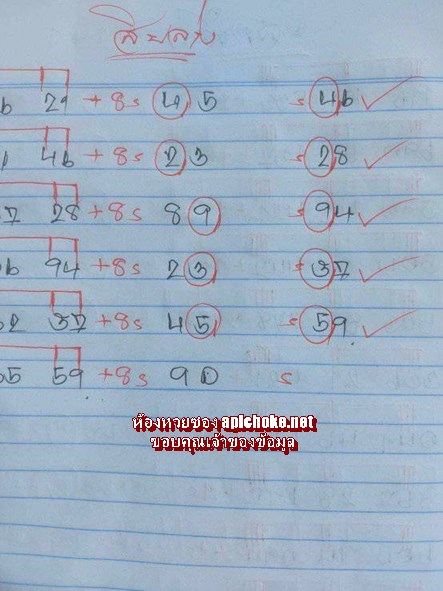 สิบล่าง
6 29 + 8 = 45 = 46 ✓
46 + 8 = 23 = 28 ✓
37 28 + 8 = 89 = 94 ✓
6 94 + 8 = 23 = 37 ✓
62 37 + 8 = 45 = 59 ✓
65 59 + 8 = 90 =
ห้องหวยซอง apichoke.net
ขอบคุณเจ้าของข้อมูล